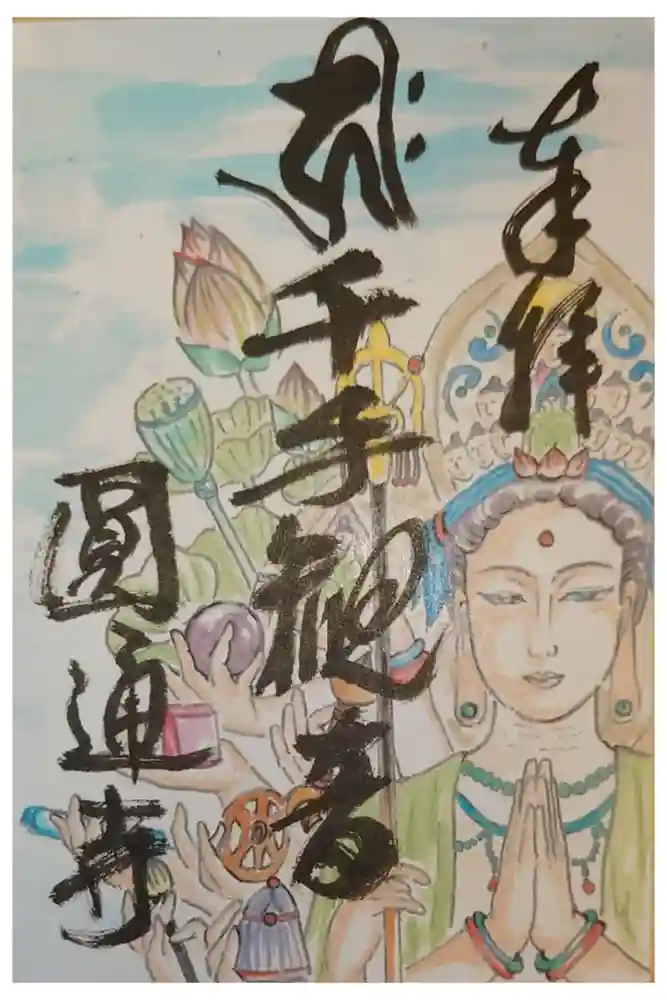 奉拝
千手観音
圓通寺